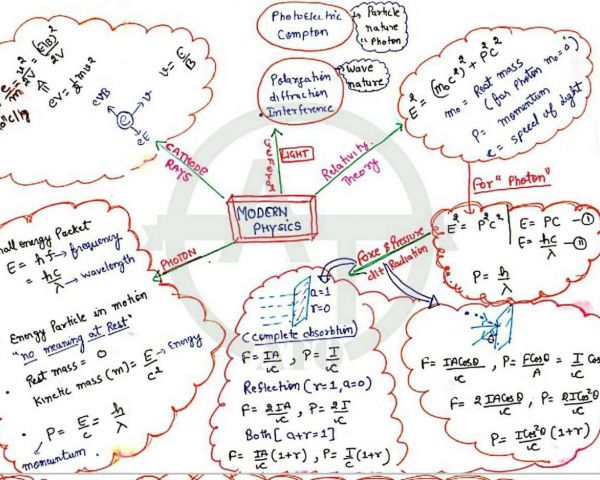 Photoelectric
Compton
→ Particle
nature
"Photon
Polarization
diffraction
Interference
→ wave
nature
E² = (m₀c²)² + P²c²
m₀ = Rest mass
(for photon m₀ = 0)
P = momentum
c = speed of light
eV = ½mv²
v = E/B
evB
e
v
eE
CATHODE
RAYS
General
LIGHT
Relativity
Theory
MODERN
PHYSICS
PHOTON
Force & Pressure
dlt Radiation
For "Photon"
E² = P²c²
E = PC —①
E = hc/λ —②
P = h/λ
small energy Packet
E = hf → frequency
= hc/λ → wavelength
Energy Particle in motion
"no meaning at Rest"
• Rest mass = 0
Kinetic mass (m) = E/c² → energy
• P = E/c = h/λ
momuntum.
a=1
r=0
(complete absorbtion)
F = IA/c , P = I/c
Reflection (r=1, a=0)
F = 2IA/c , P = 2I/c
Both [a+r=1]
F = IA/c (1+r) , P = I/c (1+r)
F = IACosθ/c , P = FCosθ/A = I/c Cos
F = 2IACosθ/c , P = 2ICos²θ/c
P = ICos²θ/c (1+r)